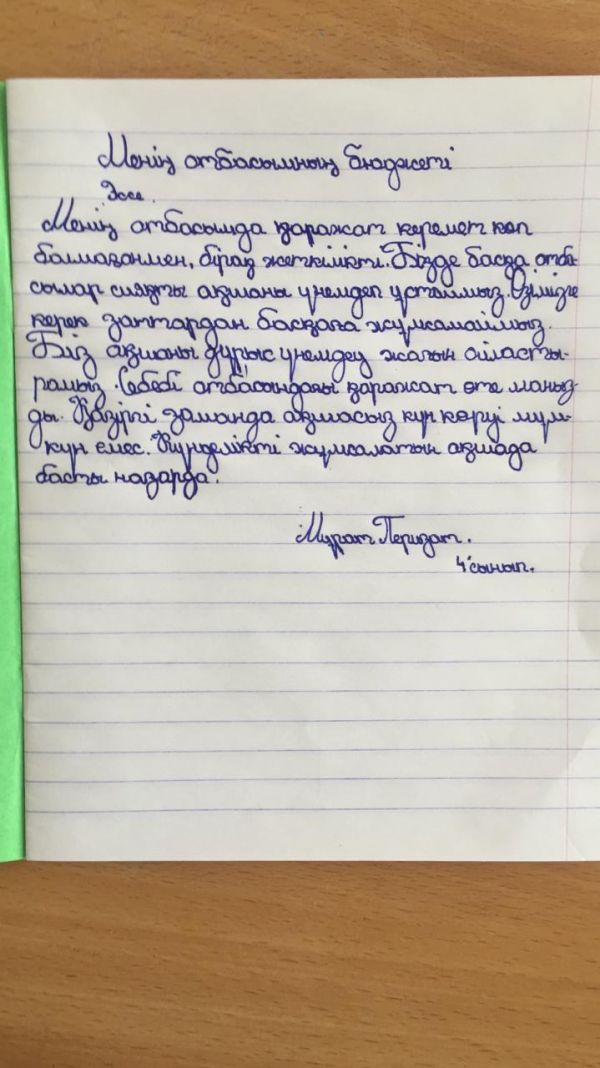 Менің отбасымның бюджеті
Эссе.
Менің отбасымда қаражат керемет көп
болмағанмен, бірақ жеткілікті. Бізде басқа отба-
сылар сияқты ақшаны үнемдеп ұстаймыз. Өзімізге
керек заттардан басқаға жұмсамаймыз.
Біз ақшаны дұрыс үнемдеу жағын ойласты-
рамыз. Себебі отбасындағы қаражат өте маңыз-
ды. Қазіргі заманда ақшасыз күн көру мүм-
күн емес. Күнделікті жұмсалатын ақшада
басты назарда.
Мұрат Перизат.
4 сынып.